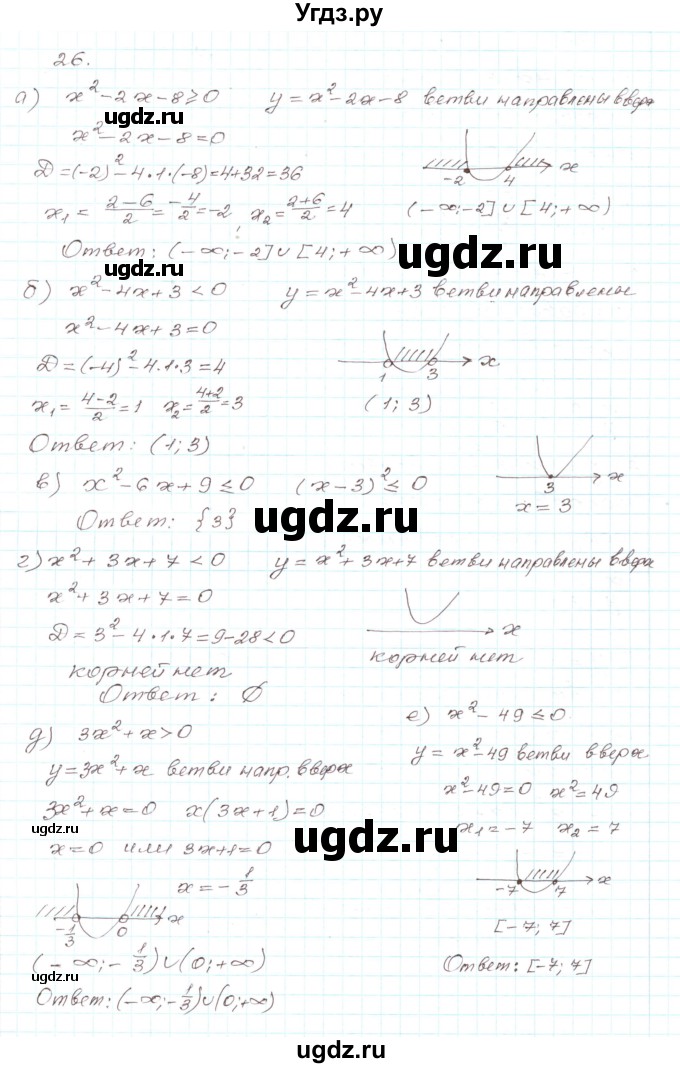 Угдз.ру
26.
а) x²-2x-8≥0 y=x²-2x-8 ветви направлены вверх
x²-2x-8=0
Д=(-2)²-4·1·(-8)=4+32=36
-2 4 x
x₁=(2-6)/2=-4/2=-2 x₂=(2+6)/2=4 (-∞;-2]∪[4;+∞)
Ответ: (-∞;-2]∪[4;+∞)
ugdz.ru
ugdz.ru
б) x²-4x+3<0 y=x²-4x+3 ветви направлены
x²-4x+3=0
Д=(-4)²-4·1·3=4
1 3 x
x₁=(4-2)/2=1 x₂=(4+2)/2=3 (1;3)
Ответ: (1;3)
в) x²-6x+9≤0 (x-3)²≤0
3 x
x=3
Ответ: {3}
ugdz.ru
ugdz.ru
г) x²+3x+7<0 y=x²+3x+7 ветви направлены вверх
x²+3x+7=0
Д=3²-4·1·7=9-28<0
x
корней нет
корней нет
Ответ: ∅
ugdz.ru
д) 3x²+x>0
y=3x²+x ветви напр. вверх
3x²+x=0 x(3x+1)=0
ugdz.ru
ugdz.ru
x=0 или 3x+1=0
x=-1/3
-1/3 0 x
(-∞;-1/3)∪(0;+∞)
Ответ: (-∞;-1/3)∪(0;+∞)
е) x²-49≤0
y=x²-49 ветви вверх
x²-49=0 x²=49
x₁=-7 x₂=7
-7 7 x
[-7;7]
Ответ: [-7;7]
ugdz.ru
ugdz.ru